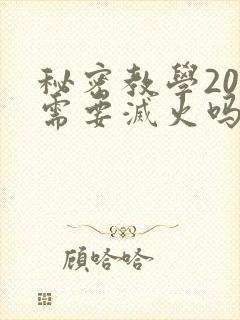 秘密教學20
需要滅火吗
顾哈哈